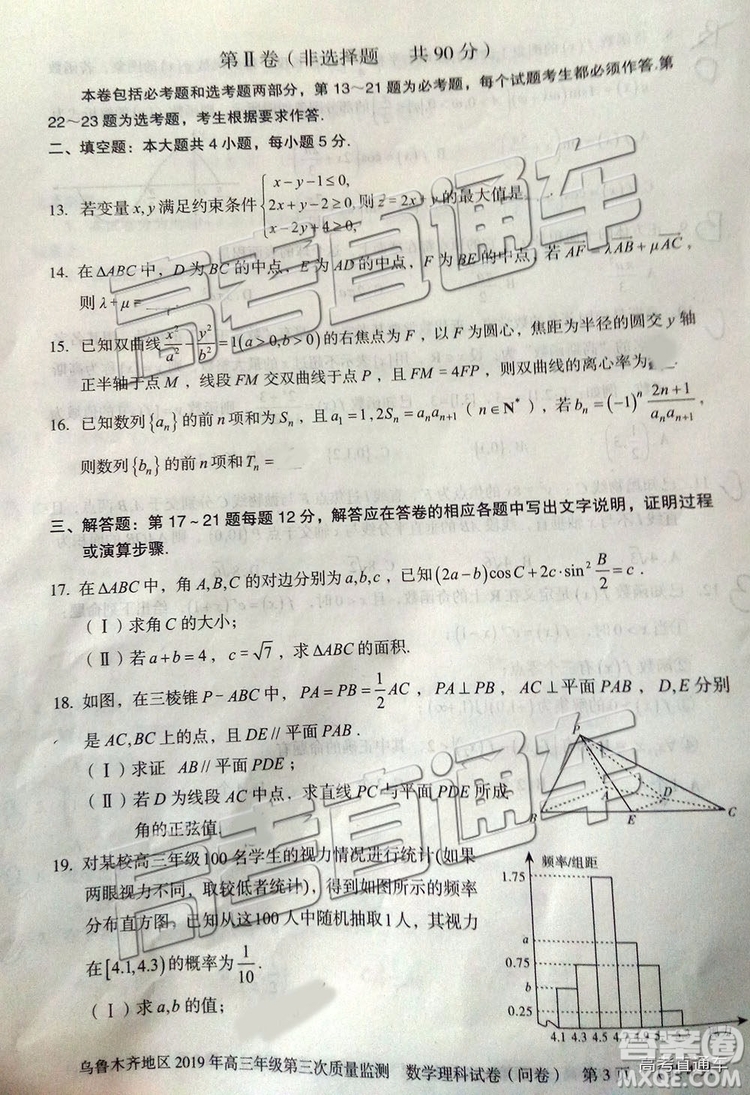 第Ⅱ卷(非选择题 共90分)
本卷包括必考题和选考题两部分，第13~21题为必考题，每个试题考生都必须作答.第
22~23题为选考题，考生根据要求作答.
二、填空题：本大题共4小题，每小题5分.
13. 若变量x,y满足约束条件{x-y-1≤0, 2x+y-2≥0, x-2y+4≥0, 则z=2x+y的最大值是
14. 在ΔABC中，D为BC的中点，E为AD的中点，F为BE的中点，若AF=λAB+μAC，
则λ+μ=
15. 已知双曲线x²/a²-y²/b²=1(a>0,b>0)的右焦点为F，以F为圆心，焦距为半径的圆交y轴
正半轴于点M，线段FM交双曲线于点P，且FM=4FP，则双曲线的离心率为
16. 已知数列{aₙ}的前n项和为Sₙ，且a₁=1,2Sₙ=aₙaₙ₊₁（n∈N*），若bₙ=(-1)ⁿ (2n+1)/(aₙaₙ₊₁)，
则数列{bₙ}的前n项和Tₙ=
三、解答题：第17~21题每题12分，解答应在答卷的相应各题中写出文字说明，证明过程
或演算步骤.
17. 在ΔABC中，角A,B,C的对边分别为a,b,c，已知(2a-b)cosC+2c·sin²B/2=c.
(Ⅰ)求角C的大小；
(Ⅱ)若a+b=4，c=√7，求ΔABC的面积.
18. 如图，在三棱锥P-ABC中，PA=PB=1/2AC，PA⊥PB，AC⊥平面PAB，D,E分别
是AC,BC上的点，且DE//平面PAB.
(Ⅰ)求证 AB//平面PDE；
(Ⅱ)若D为线段AC中点，求直线PC与平面PDE所成
角的正弦值.
P
A
B
D
E
C
19. 对某校高三年级100名学生的视力情况进行统计(如果
两眼视力不同，取较低者统计)，得到如图所示的频率
分布直方图，已知从这100人中随机抽取1人，其视力
在[4.1,4.3)的概率为1/10.
(Ⅰ)求a,b的值；
频率/组距
1.75
a
0.75
b
0.25
4.1 4.3 4.5 4.7 4.9 5.1
乌鲁木齐地区2019年高三年级第三次质量监测 数学理科试卷(问卷) 第3页
高考直通车
高考直通车
高考直通车